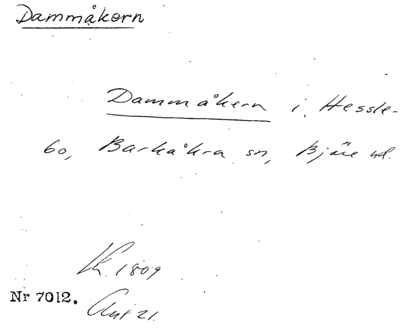 Dammåkern
Dammåkern i Hessle-
bo, Barkåkra sn, Bjäre hd.
lk. 1809
Nr 7012.
Akt 21.